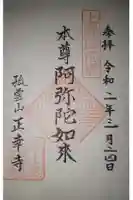 参拝 令和二年三月二四日
本尊 阿弥陀如来
山 正幸寺